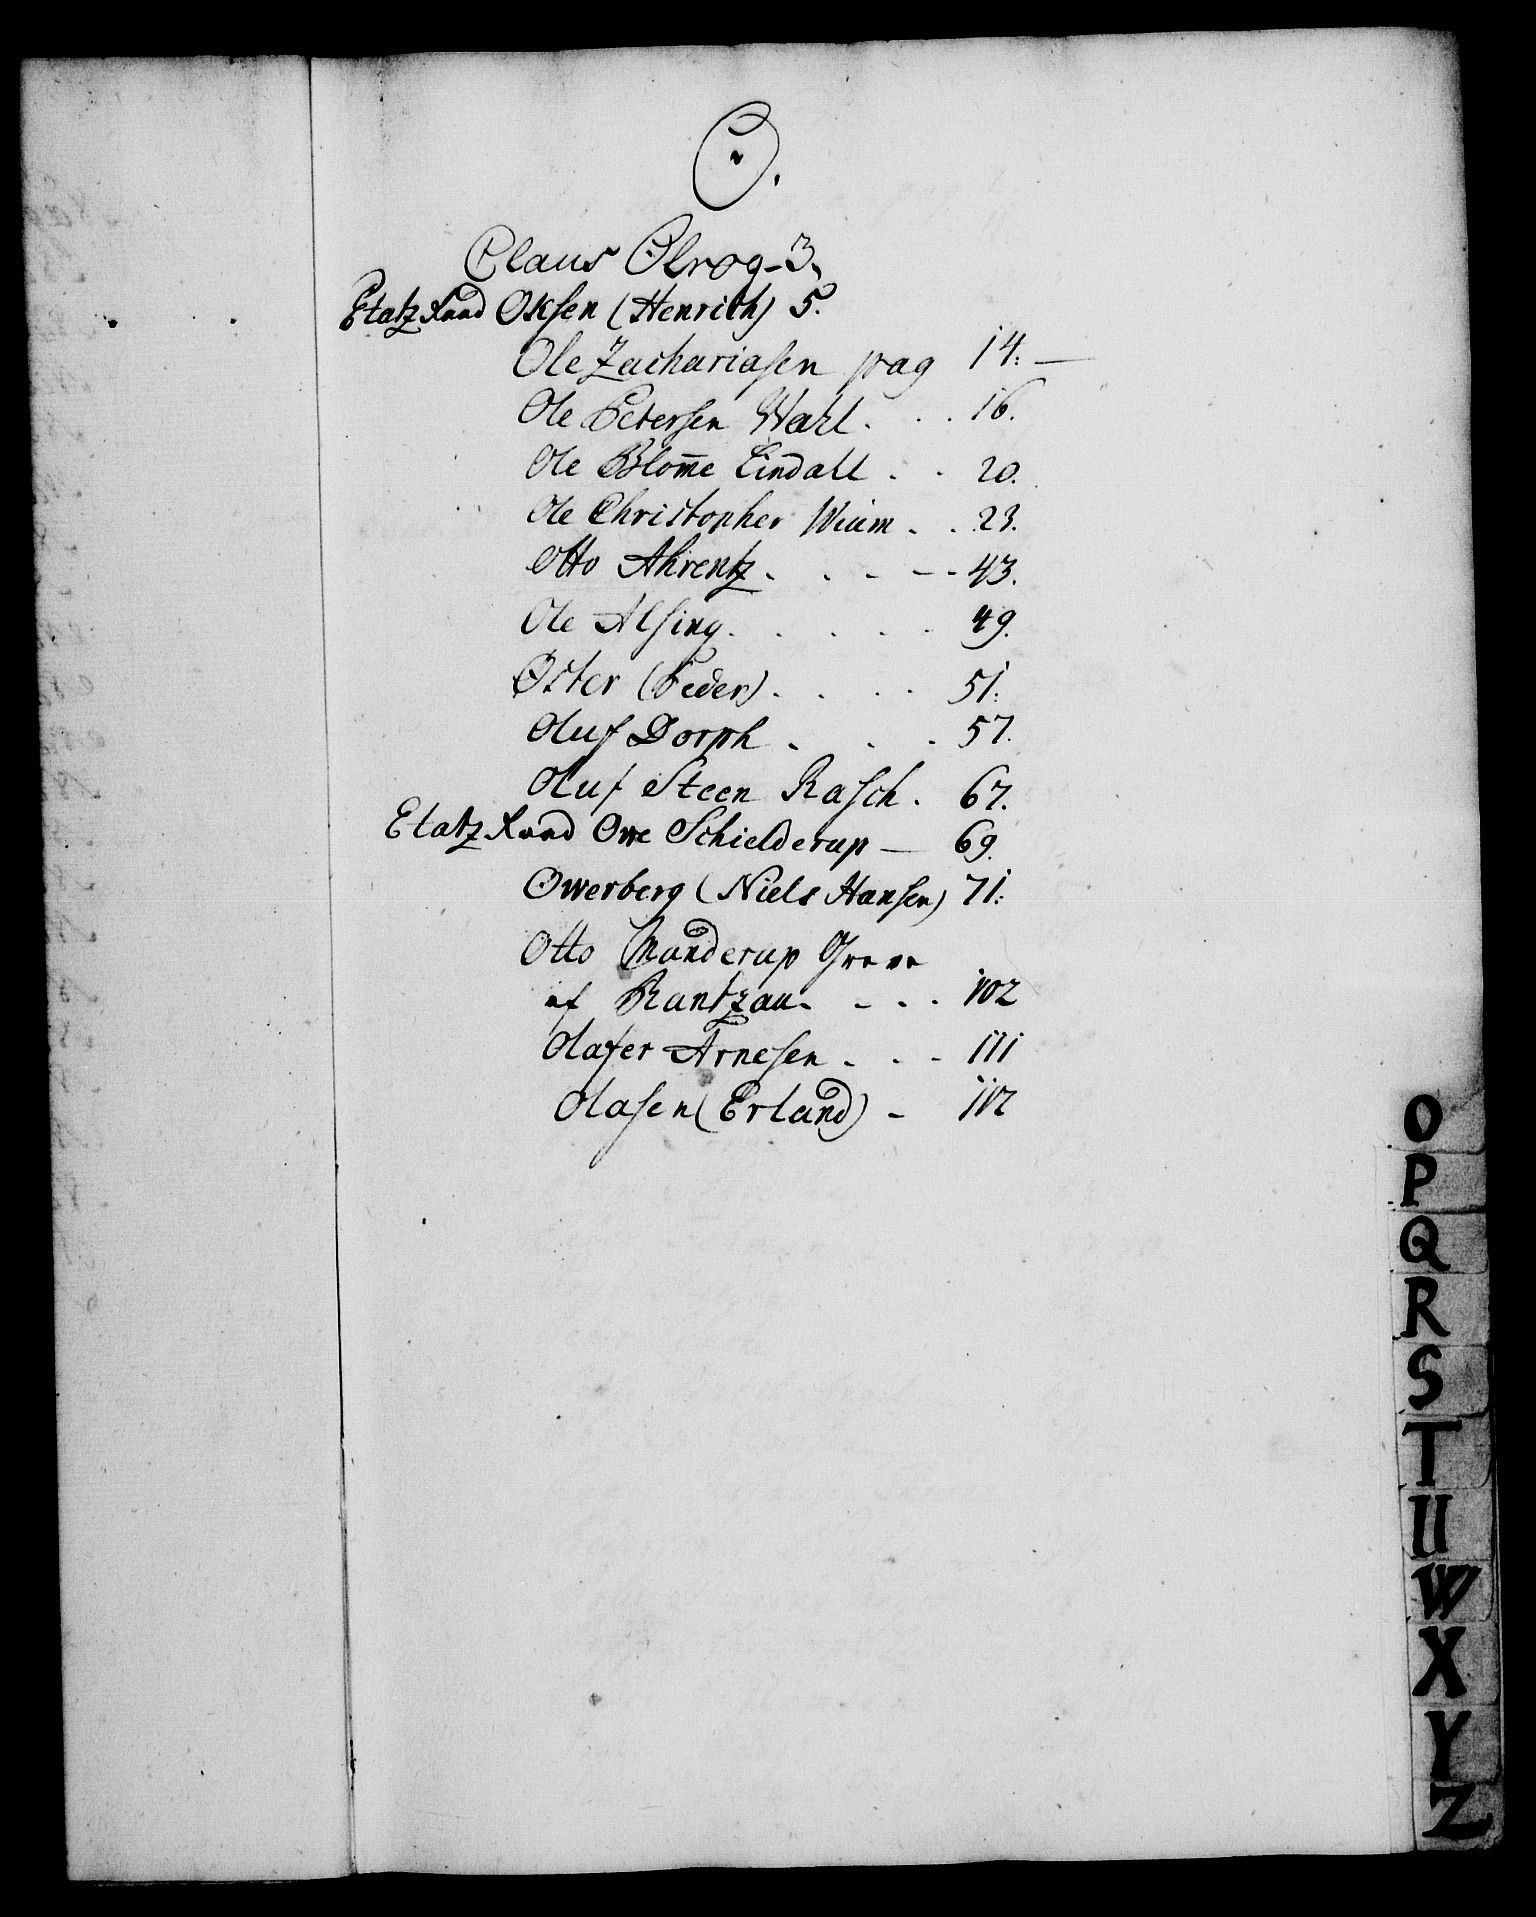 O.
Claus Olrog - 3.
Etatz Raad Oksen (Henrich) 5.
Ole Zachariasen pag 14. —
Ole Petersen Wahl . . . 16.
Ole Blom̅e Lindall . . 20.
Ole Christopher Wium . . 23.
Otto Ahrentz . . . - - 43.
Ole Alsing . . . . . 49.
Oster (Peder) . . . . 51.
Oluf Dorph . . . 57.
Oluf Steen Rasch . 67.
Etatz Raad Owe Schielderup — 69.
Owerberg (Niels Hansen) 71.
Otto Manderup Greve
af Rantzau . . . . 102
Olafer Arnesen . . - 111
Olasen (Erland) - 112
O
P
Q
R
S
T
U
W
X
Y
Z